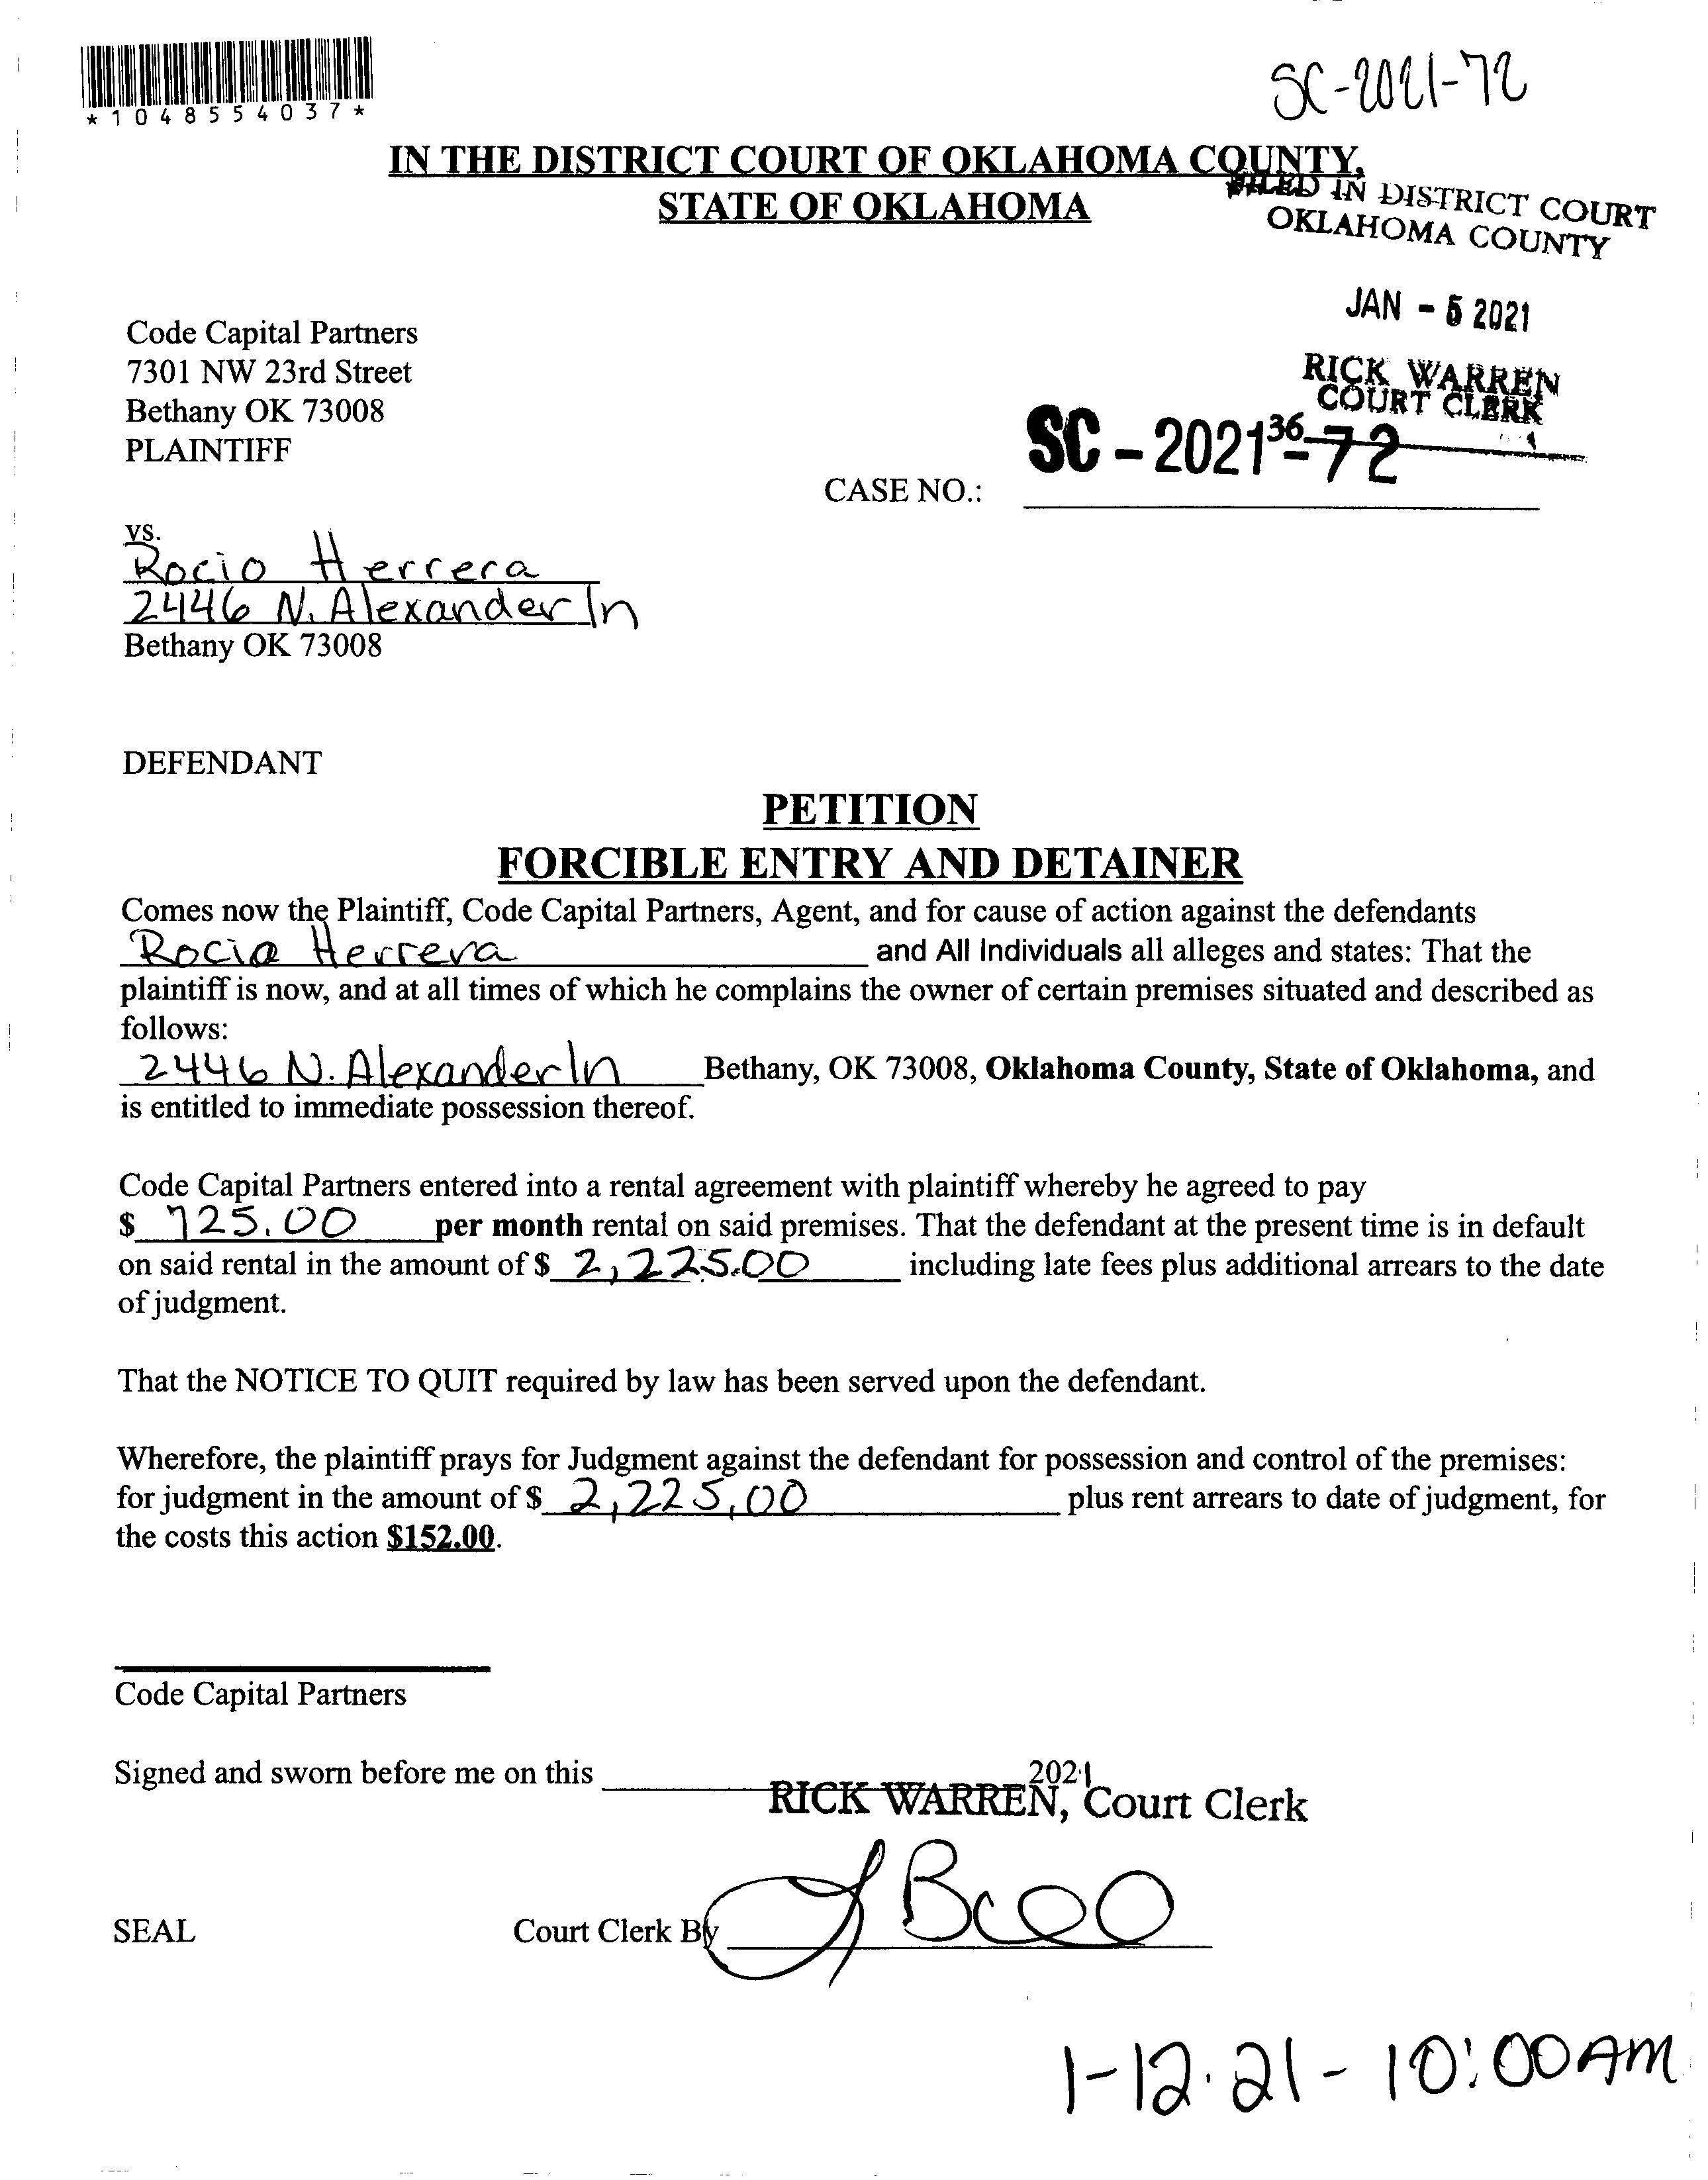 *1048554037*
SC-2021-72
IN THE DISTRICT COURT OF OKLAHOMA COUNTY,
STATE OF OKLAHOMA
FILED IN DISTRICT COURT
OKLAHOMA COUNTY
JAN - 5 2021
RICK WARREN
COURT CLERK
36
Code Capital Partners
7301 NW 23rd Street
Bethany OK 73008
PLAINTIFF
CASE NO.: SC - 2021 - 72
vs.
Rocio Herrera
2446 N. Alexander ln
Bethany OK 73008
DEFENDANT
PETITION
FORCIBLE ENTRY AND DETAINER
Comes now the Plaintiff, Code Capital Partners, Agent, and for cause of action against the defendants
Rocio Herrera and All Individuals all alleges and states: That the
plaintiff is now, and at all times of which he complains the owner of certain premises situated and described as
follows:
2446 N. Alexander ln Bethany, OK 73008, Oklahoma County, State of Oklahoma, and
is entitled to immediate possession thereof.
Code Capital Partners entered into a rental agreement with plaintiff whereby he agreed to pay
$ 725.00 per month rental on said premises. That the defendant at the present time is in default
on said rental in the amount of $ 2,225.00 including late fees plus additional arrears to the date
of judgment.
That the NOTICE TO QUIT required by law has been served upon the defendant.
Wherefore, the plaintiff prays for Judgment against the defendant for possession and control of the premises:
for judgment in the amount of $ 2,225.00 plus rent arrears to date of judgment, for
the costs this action $152.00.
Code Capital Partners
Signed and sworn before me on this 2021
RICK WARREN, Court Clerk
SEAL Court Clerk By
1-12-21-10:00AM